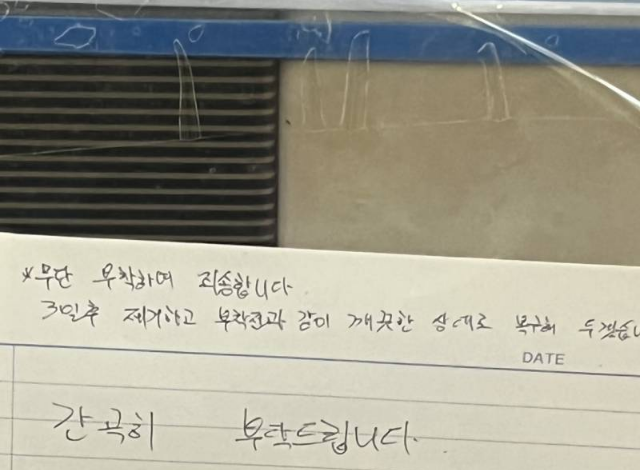 *무단 부착하여 죄송합니다
3일후 제거하고 부착전과 같이 깨끗한 상태로 복구해 두겠습니
DATE
간곡히 부탁드립니다.